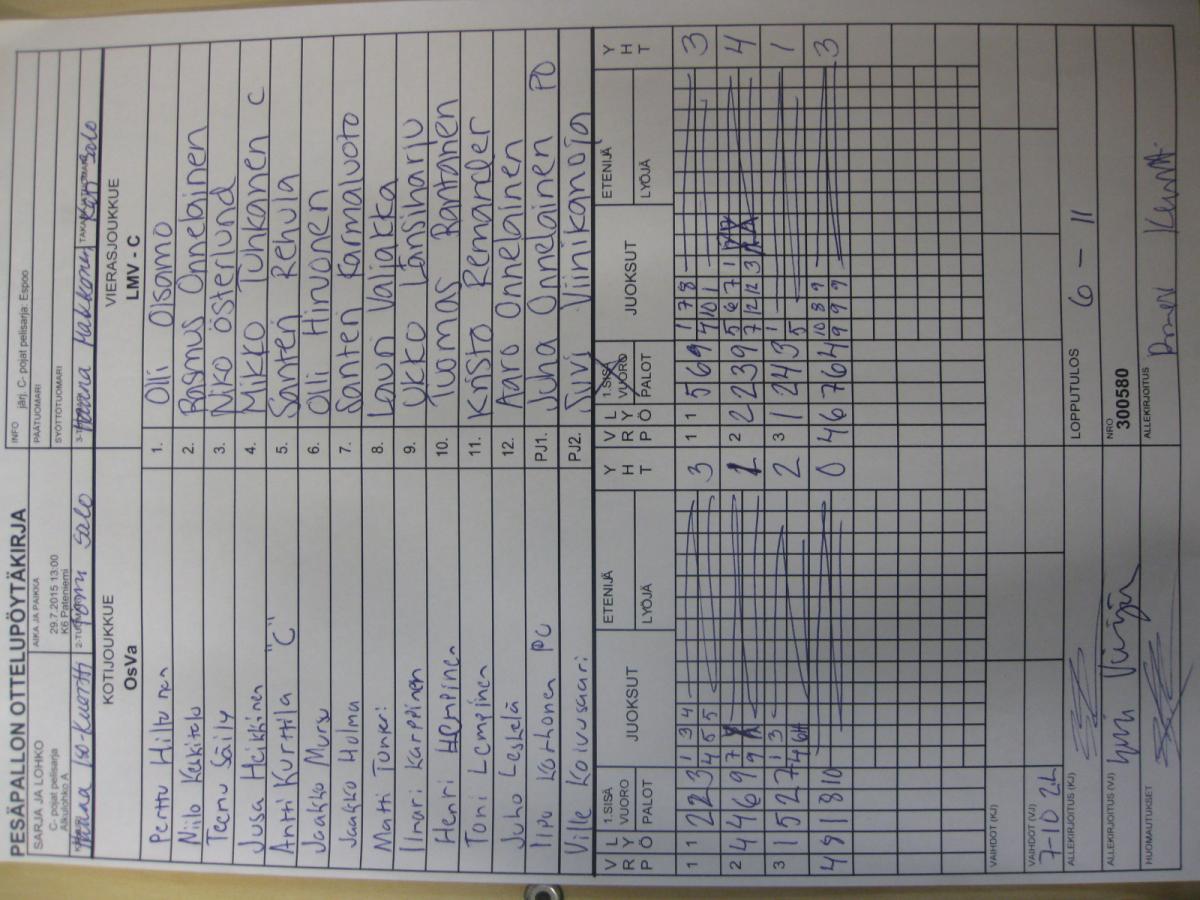 PESÄPALLON OTTELUPÖYTÄKIRJA
SARJA JA LOHKO
C- pojat pelisarja
Alkulohko A
AIKA JA PAIKKA
29.7.2015 13:00
K6 Pateniemi
INFO järj. C- pojat pelisarja: Espoo
PÄÄTUOMARI
SYÖTTÖTUOMARI
Salo
KOTIJOUKKUE
OsVa
VIERASJOUKKUE
LMV - C
Perttu Hiltunen 1. Olli Olsamo
Niilo Keskitalo 2. Rasmus Onnelainen
Teemu Säily 3. Niko Österlund
Jusa Heikkinen 4. Mikko Tuhkanen C
Antti Kurttila "C" 5. Santeri Rehula
Jaakko Mursu 6. Olli Hirvonen
Jaakko Holma 7. Santeri Karmaluoto
Matti Tuneri 8. Lauri Valjakka
Ilmari Karppinen 9. Ukko Länsiharju
Henri Lempinen 10. Tuomas Rantanen
Toni Lempinen 11. Kristo Remander
Juho Leskelä 12. Aaro Onnelainen
Ilpo Korhonen PJ1. Juha Onnelainen PO
Ville Koivusaari PJ2. Viinikanoja
V R P L Y Ö 1.SISÄ VUORO PALOT JUOKSUT ETENIJÄ LYÖJÄ Y H T
V R P L Y Ö 1.SISÄ VUORO PALOT JUOKSUT ETENIJÄ LYÖJÄ Y H T
1 1 2 2 3 1 3 4 4 5 5 3
1 1 5 6 9 1 7 8 4 10 1 3
2 4 4 6 9 7 9
2 2 2 3 9 5 6 7 1 7 12 12 3 4
3 1 5 2 7 1 3 4 2
3 1 2 4 3 1 5 1
4 9 1 8 10 0
4 6 7 6 4 10 8 9 9 9 9 3
VAIHDOT (KJ)
VAIHDOT (VJ)
7-10 2L
ALLEKIRJOITUS (KJ)
LOPPUTULOS 6 - 11
ALLEKIRJOITUS (VJ)
NRO
300580
HUOMAUTUKSET
ALLEKIRJOITUS